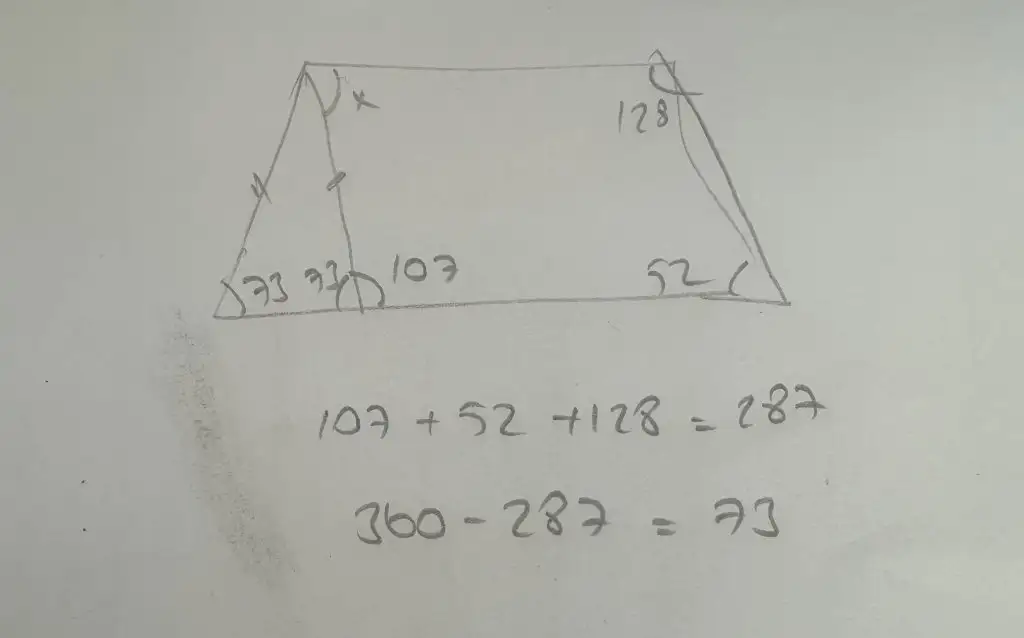 x
128
73 73 107 52
107 + 52 + 128 = 287
360 - 287 = 73